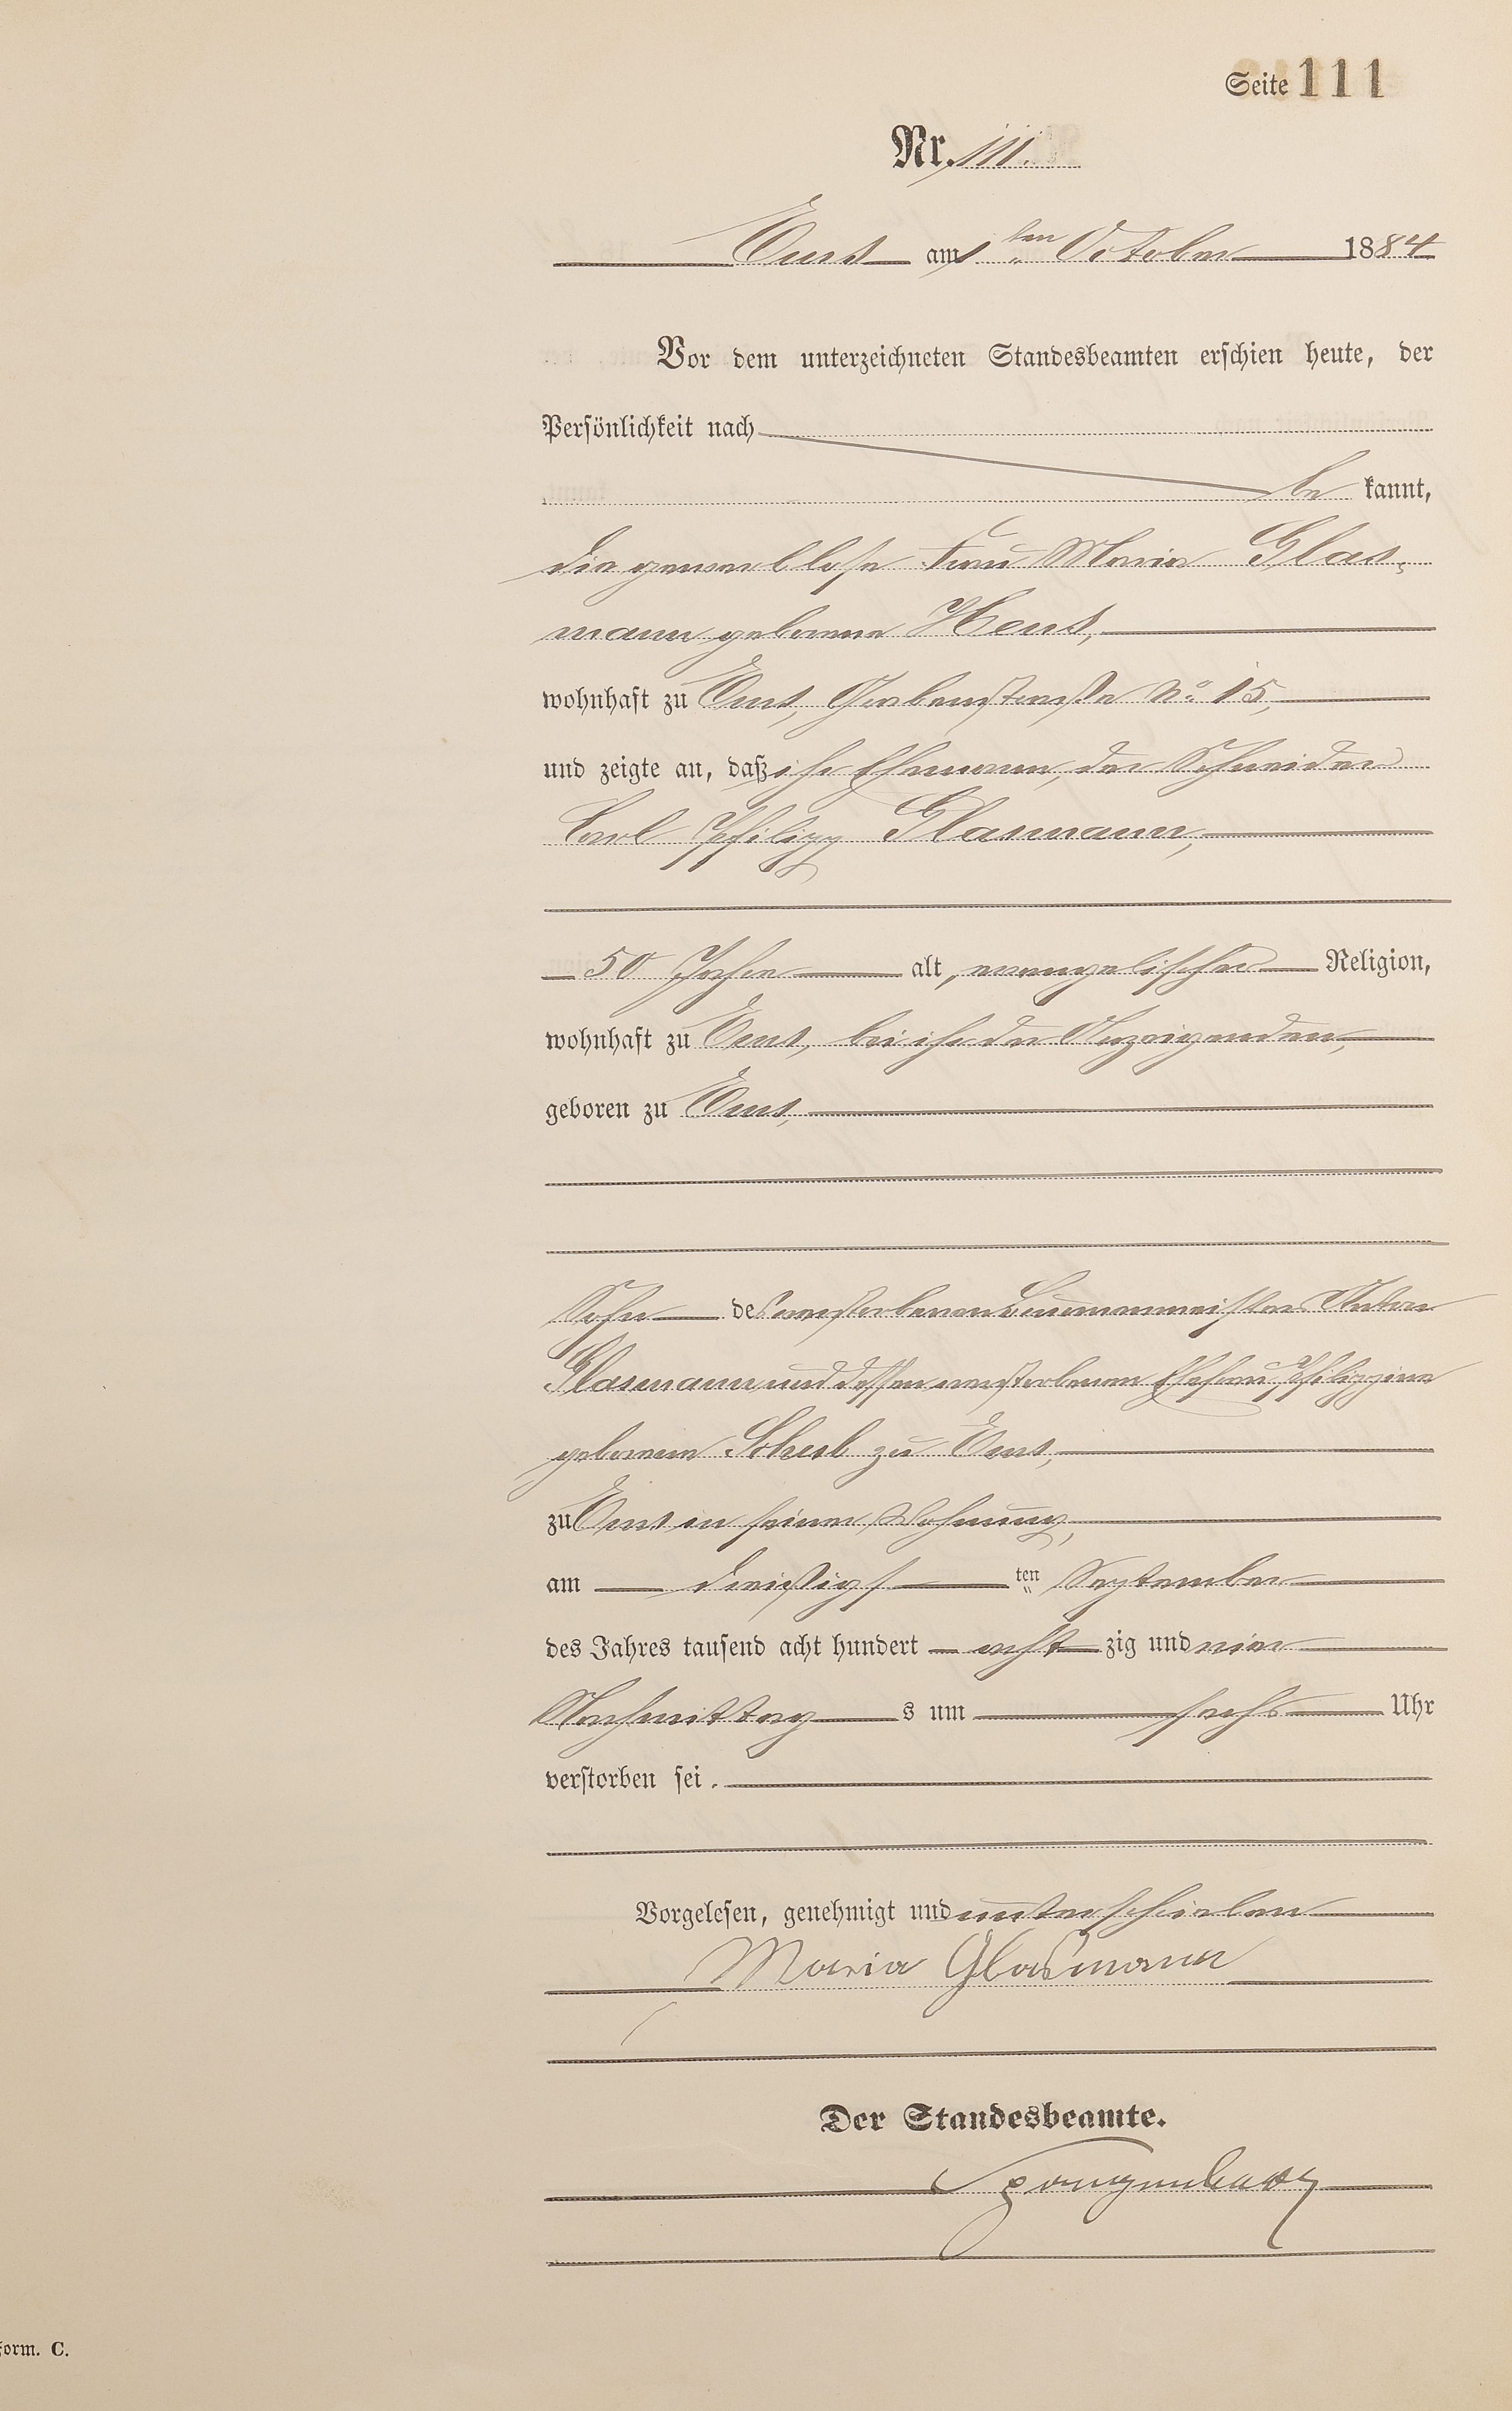 Seite 111
Nr. 111.
Ems am 1ten October 1884
Vor dem unterzeichneten Standesbeamten erschien heute, der
Persönlichkeit nach
be kannt,
die gewerblose Frau Maria Glas-
mann geborene
wohnhaft zu Ems, Grabenstraße No. 15,
und zeigte an, daß ihr Ehemann, der Schneider
Carl Philipp Glasmann,
50 Jahre alt, evangelischer Religion,
wohnhaft zu Ems, bei ihr der Anzeigenden,
geboren zu Ems,
Sohn des verstorbenen Anton
Glasmann und dessen verstorbenen Ehefrau Philippine
geborenen zu Ems,
zu Ems in seiner Wohnung,
am dreißigsten September
des Jahres tausend acht hundert acht zig und vier
Nachmittag s um sechs Uhr
verstorben sei.
Vorgelesen, genehmigt und unterschrieben
Maria Glasmann
Der Standesbeamte.
Form. C.